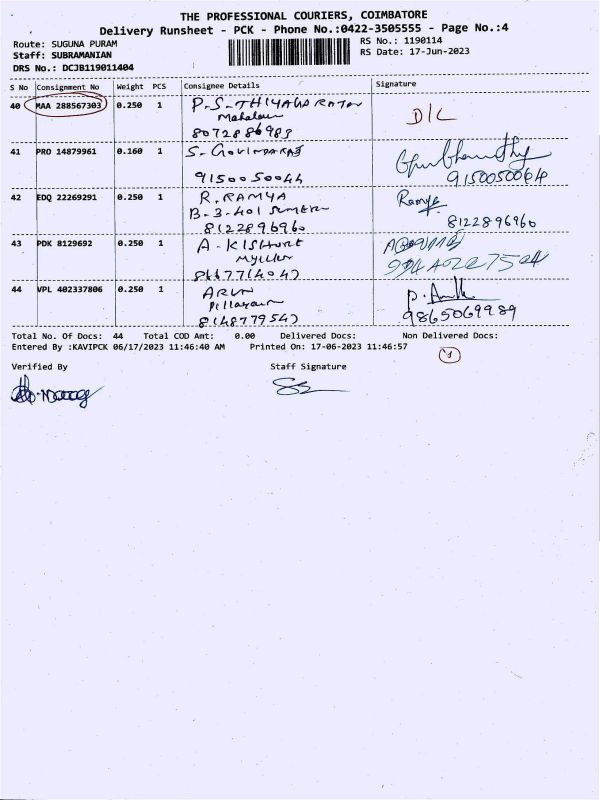 THE PROFESSIONAL COURIERS, COIMBATORE
Delivery Runsheet - PCK - Phone No.:0422-3505555 - Page No.:4
Route: SUGUNA PURAM
RS No.: 1190114
Staff: SUBRAMANIAN
RS Date: 17-Jun-2023
DRS No.: DCJB119011404
S No Consignment No Weight PCS Consignee Details Signature
40 MAA 288567303 0.250 1 P-S-THIYAGARAJAN D/C
8072886983
41 PRO 14879961 0.160 1 S. GOVINDARAJ
9150050044 9150050064
42 EDQ 22269291 0.250 1 R. RAMYA Ramya
B-3-401
8122896960 8122896960
43 PDK 8129692 0.250 1 A - KISHORE
44 VPL 402337806 0.250 1 ARUN
8148779547 9865069989
Total No. Of Docs: 44 Total COD Amt: 0.00 Delivered Docs: Non Delivered Docs:
Entered By :KAVIPCK 06/17/2023 11:46:40 AM Printed On: 17-06-2023 11:46:57
Verified By Staff Signature